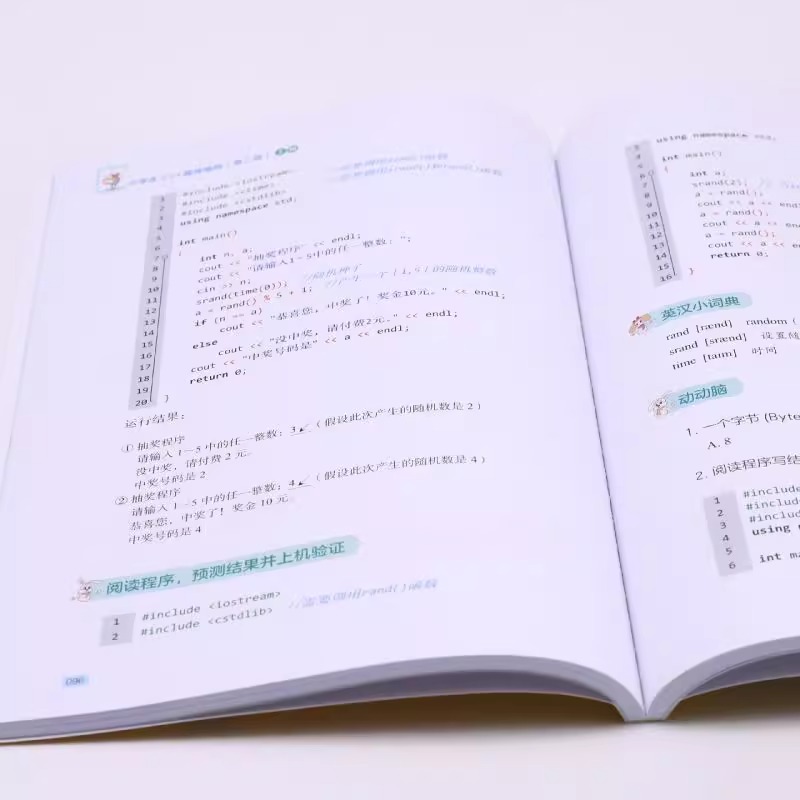 1 #include <iostream>
2 #include <ctime> //需要调用time()函数
3 #include <cstdlib> //需要调用srand()和rand()函数
4 using namespace std;
5
6 int main()
7 {
int n, a;
8 cout << "抽奖程序" << endl;
9 cout << "请输入1~5中的任一整数:";
10 cin >> n;
11 srand(time(0)); //随机种子
12 a = rand() % 5 + 1; //产生一个[1,5]的随机整数
13 if (n == a)
14 cout << "恭喜您,中奖了!奖金10元。" << endl;
15 else
16 cout << "没中奖,请付费2元。" << endl;
17 cout << "中奖号码是" << a << endl;
18 return 0;
19
20 }
运行结果:
① 抽奖程序
请输入 1~5 中的任一整数:3↙(假设此次产生的随机数是 2)
没中奖,请付费 2 元。
中奖号码是 2
② 抽奖程序
请输入 1~5 中的任一整数:4↙(假设此次产生的随机数是 4)
恭喜您,中奖了!奖金 10 元。
中奖号码是 4
阅读程序,预测结果并上机验证
1 #include <iostream>
2 #include <cstdlib> //需要调用rand()函数
096
using namespace std;
int main()
{
int a;
srand(2);
a = rand();
cout << a << end
a = rand();
cout << a << en
a = rand();
cout << a << e
return 0;
}
英汉小词典
rand [rænd] random (
srand [srænd] 设置随
time [taɪm] 时间
动动脑
1. 一个字节 (Byte
A. 8
2. 阅读程序写结
1 #include
2 #include
3 #inclu
4 using n
5
6 int ma